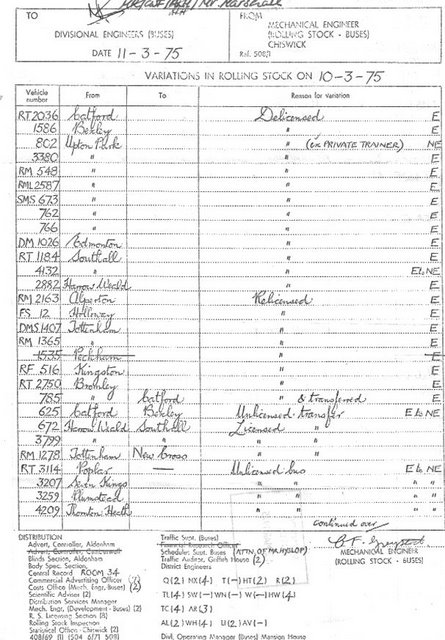 TO
DIVISIONAL ENGINEERS (BUSES)
DATE 11-3-75
FROM
MECHANICAL ENGINEER
(ROLLING STOCK - BUSES)
CHISWICK
Ref. 508/1
VARIATIONS IN ROLLING STOCK ON 10-3-75
Vehicle number From To Reason for variation
RT 2036 Catford Delicensed E
1586 Bexley " E
802 Upton Park " (ex PRIVATE TRAINER) NE
3380 " " E
RM 548 " " E
RML 2587 " " E
SMS 673 " " E
762 " " E
766 " " E
DM 1026 Edmonton " E
RT 1184 Southall " E
4132 " " E to NE
2882 Harrow Weald " E
RM 2163 Alperton Relicensed E
FS 12 Holloway " E
DMS 1407 Tottenham " E
RM 1365 " " E
1535 Peckham " E
RF 516 Kingston " E
RT 2750 Bromley " E
785 " Catford " & transferred E
625 Catford Bexley Unlicensed transfer E to NE
672 Harrow Weald Southall Licensed " E
3799 " " " " E
RM 1278 Tottenham New Cross " " E
RT 3114 Poplar — Unlicensed bus E to NE
3207 Seven Kings " " " "
3259 Plumstead " " " "
4209 Thornton Heath " " " "
continued over
MECHANICAL ENGINEER
(ROLLING STOCK - BUSES)
DISTRIBUTION
Advert. Controller, Aldenham
Blinds Section, Aldenham
Body Spec. Section,
Central Record ROOM 34
Commercial Advertising Officer
Costs Office (Mech. Engr. Buses) (2)
Scientific Adviser (2)
Distribution Services Manager
Mech. Engr. (Development - Buses) (2)
R. S. Licensing Section
Rolling Stock Inspection
Statistical Office - Chiswick (2)
Traffic Supt. (Buses)
Financial Research Officer
Schedules Supt. Buses (ATTN. OF MR HYSLOP)
Traffic Auditor, Griffith House (2)
District Engineers
Q (2) NX (4) T (-) HT (2) R (2)
TL (4) SW (-) WN (-) W (-) HW (4)
TC (4) AR (3)
AL (2) WH (4) U (2) AV (-)
Divl. Operating Manager (Buses) Mansion House